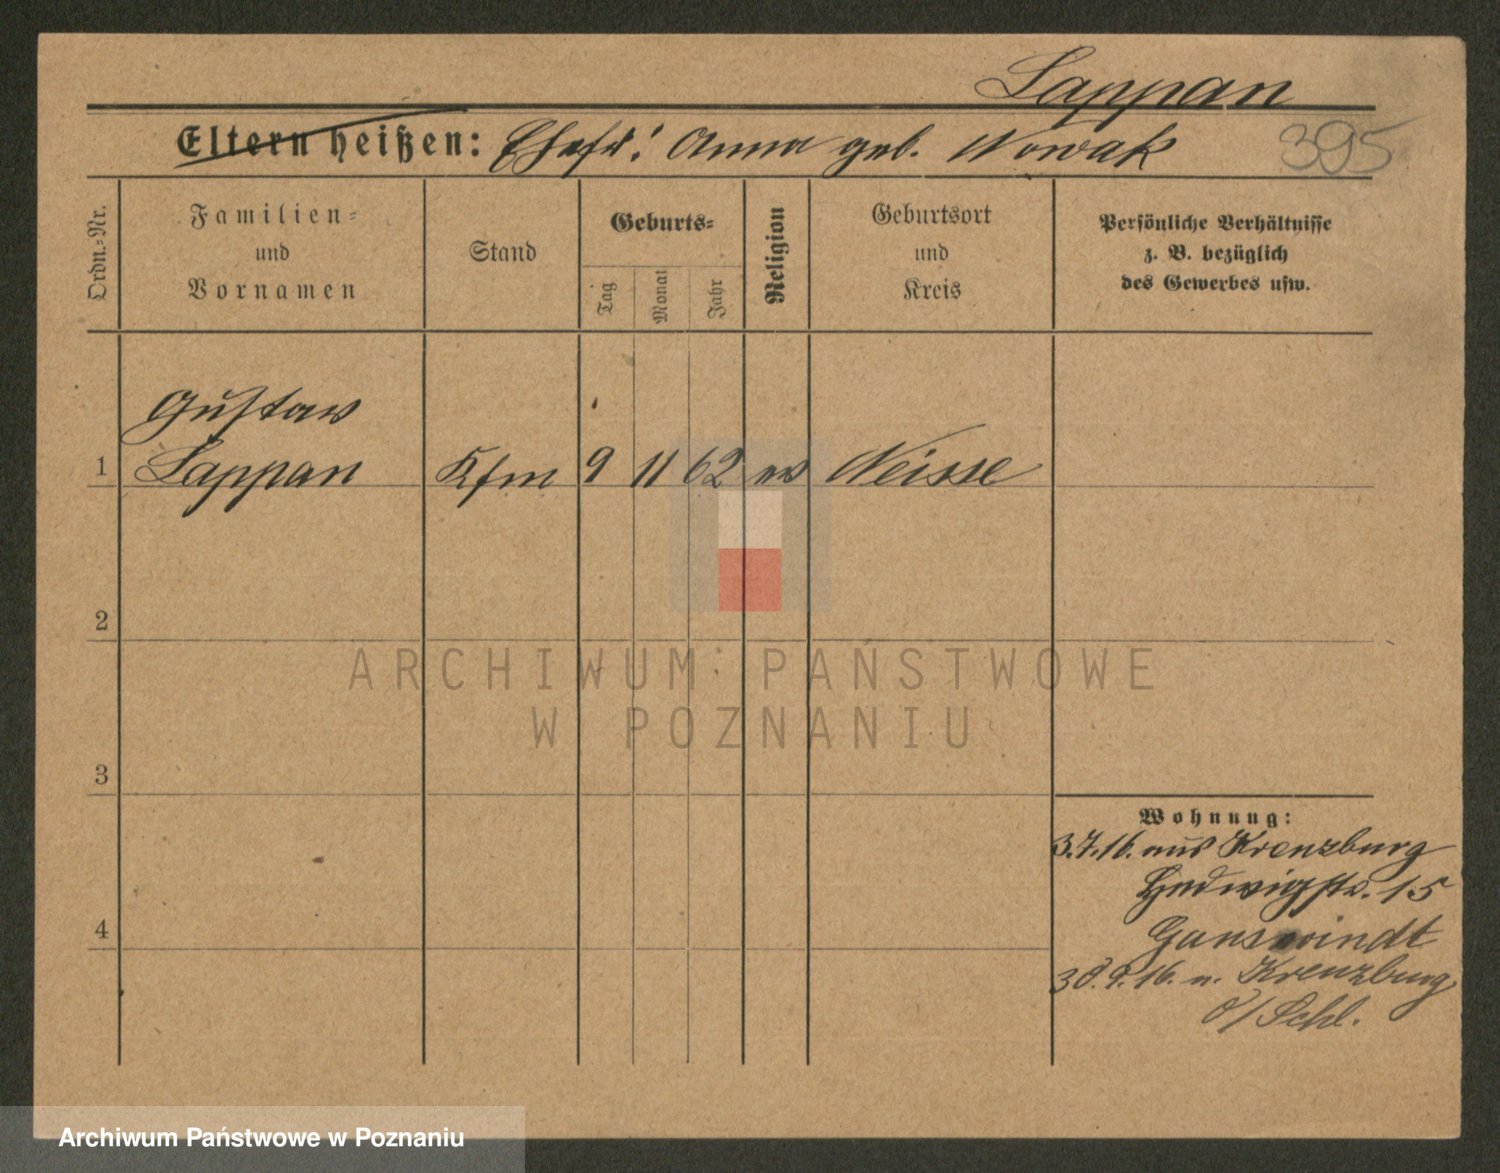 Lappan
Eltern heißen: Ehefr: Anna geb. Nowak
395
Ordn.=Nr.
Familien=
und
Vornamen
Stand
Geburts=
Tag
Monat
Jahr
Religion
Geburtsort
und
Kreis
Persönliche Verhältnisse
z. B. bezüglich
des Gewerbes usw.
Gustav
1 Lappan Kfm 9 11 62 ev Neisse
2
ARCHIWUM PAŃSTWOWE
W POZNANIU
3
Wohnung:
3.7.16. aus Kreuzburg
Hedwigstr. 15
Ganswindt
4
30.9.16. n. Kreuzburg
O/Schl.
Archiwum Państwowe w Poznaniu